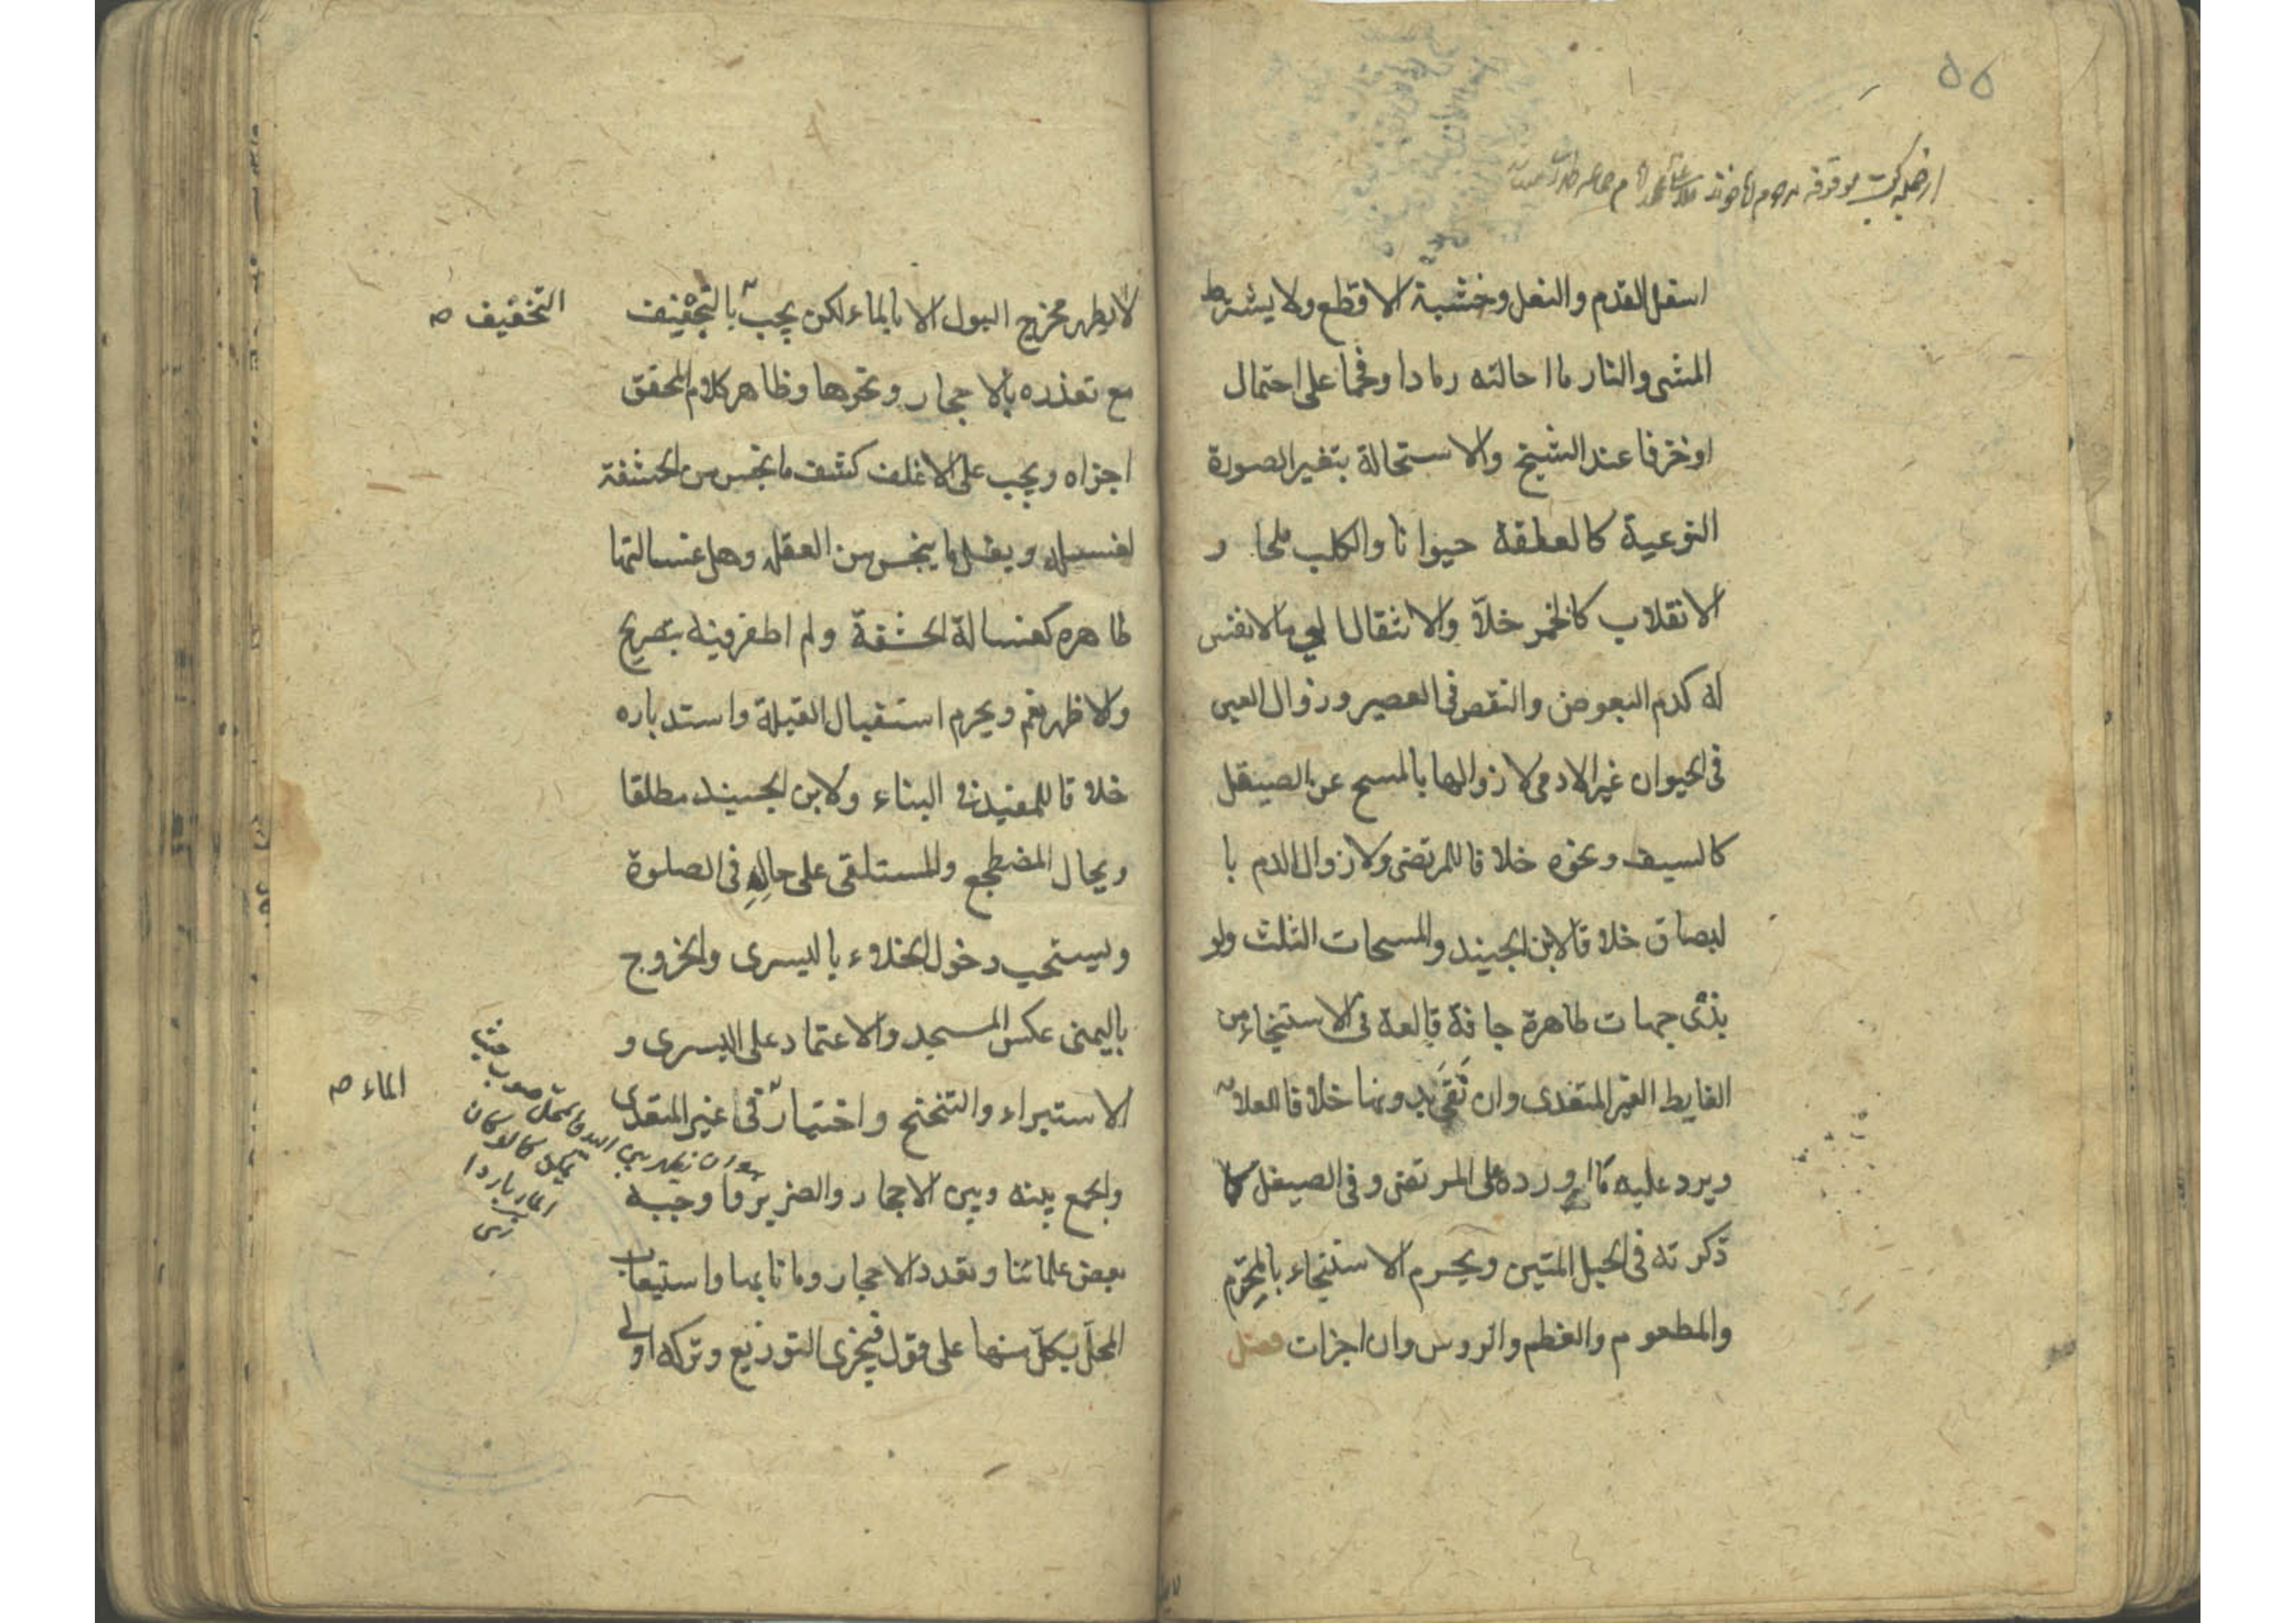 ۵۵
اسفل القدم والنعل وخشبة الاقطع ولا يشترط
المشى والنار ما احالته رمادا وفحما على احتمال
او خزفا عند الشيخ والاستحالة بتغير الصورة
النوعية كالعلقة حيوانا والكلب ملحا و
الانقلاب كالخمر خلّا والانتقال الى مالا نفس
له كدم البعوض والنقص فى العصير وزوال العين
فى الحيوان غير الادمى لا زوالها بالمسح عن الصيقل
كالسيف ونحوه خلافا للمرتضى ولا زوال الدم با
لبصاق خلافا لابن الجنيد والمسحات الثلث ولو
بذى جهات طاهرة جافة قالعة فى الاستنجاء من
الغايط الغير المتعدى وان نقى بدونها خلافا للعلامه
ويرد عليه ما اورده على المرتضى وفى الصيقل كما
ذكرته فى الحبل المتين ويحرم الاستنجاء بالمحترم
والمطعوم والعظم والروث وان اجزات فصل
لا يطهر مخرج البول الا بالماء لكن يجب بالتجفيف
التخفيف ص
مع تعذره بالاحجار ونحوها وظاهر كلام المحقق
اجزاه ويجب على الاغلف كشف ما نجس من الحشفة
لغسله ويغسل ما ينجس من الغلفة وهل غسالتها
طاهره كغسالة الحشفة ولم اظفر فيه بتصريح
والاظهر نعم ويحرم استقبال القبلة واستدباره
خلافا للمفيد فى البناء ولابن الجنيد مطلقا
ويحال المضطجع والمستلقى على حاله فى الصلوة
ويستحب دخول الخلاء باليسرى والخروج
باليمنى عكس المسجد والاعتماد على اليسرى و
الاستبراء والتنحنح واختيار فى غير المتعدى
الماء ص
والجمع بينه وبين الاحجار
بعض علمائنا وتعدد الاحجار وما نابها واستيعاب
المحلّ بكلّ منها على قول فيجزى التوزيع وتركه اولى